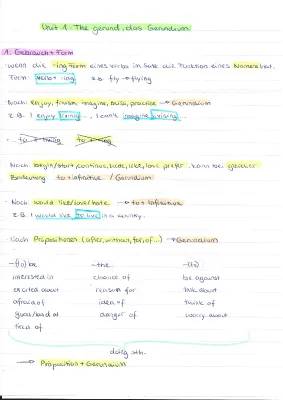 Unit 1 The gerund, das Gerundium
1. Gebrauch + Form
wenn die -ing Form eines Verbs im Satz die Funktion eines Nomens hat.
Form: verb + -ing z.B. fly → flying
Nach: enjoy, finish, imagine, miss, practise → Gerundium
z.B. I enjoy living..., I can't imagine living...
Nach: begin/start, continue, hate, like, love, prefer kann bei gleicher
Bedeutung to + infinitive / Gerundium
Nach would like/love/hate → to + infinitive
z.B. I would like to live in a
Nach Präpositionen (after, without, for, of...) → Gerundium
-(to) be -the -(to)
interested in chance of be against
excited about reason for talk about
afraid of idea of think of
good/bad at danger of worry about
tired of
doing sth.
→ Präposition + Gerundium